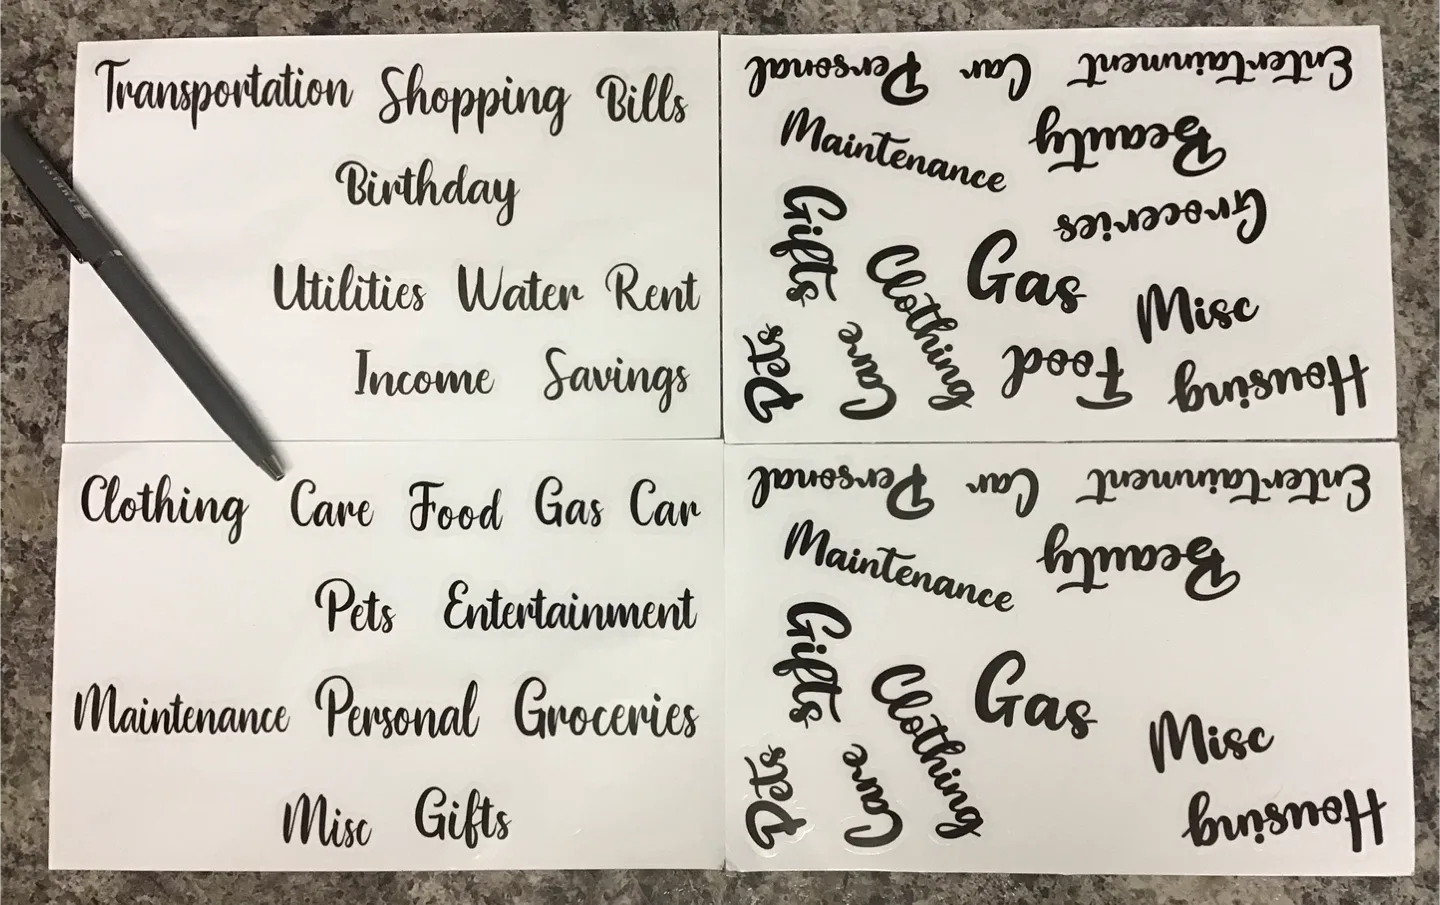 Transportation Shopping Bills
Birthday
Utilities Water Rent
Income Savings
Personal Car Entertainment
Maintenance Beauty
Groceries
Gifts Clothing Gas Misc
Pets Care Food Housing
Clothing Care Food Gas Car
Pets Entertainment
Maintenance Personal Groceries
Misc Gifts
Personal Car Entertainment
Maintenance Beauty
Gifts Clothing Gas Misc
Pets Care Housing